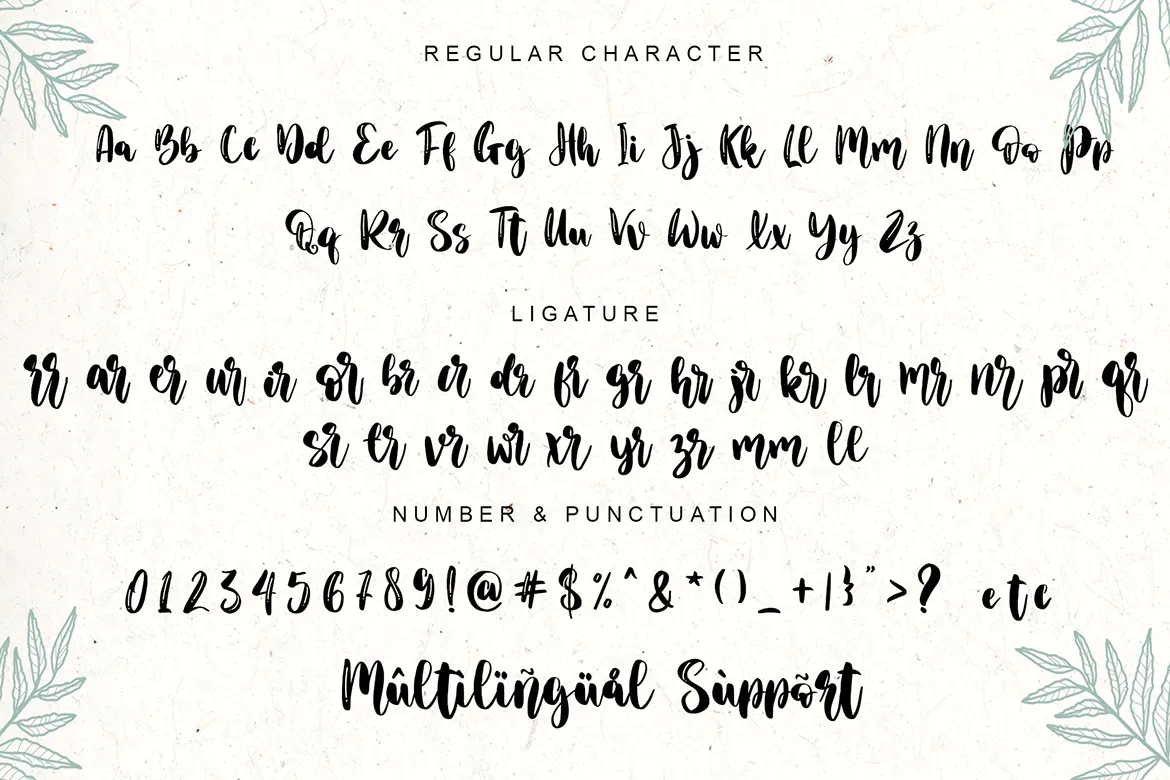 REGULAR CHARACTER
Aa Bb Cc Dd Ee Ff Gg Hh Ii Jj Kk Ll Mm Nn Oo Pp
Qq Rr Ss Tt Uu Vv Ww Xx Yy Zz
LIGATURE
rr ar er ur ir or br cr dr fr gr hr jr kr lr mr nr pr qr
sr tr vr wr xr yr zr mm ll
NUMBER & PUNCTUATION
0123456789!@#$%^&*()_+|}">? etc
Mûltïlïñgüål Sùppõrt